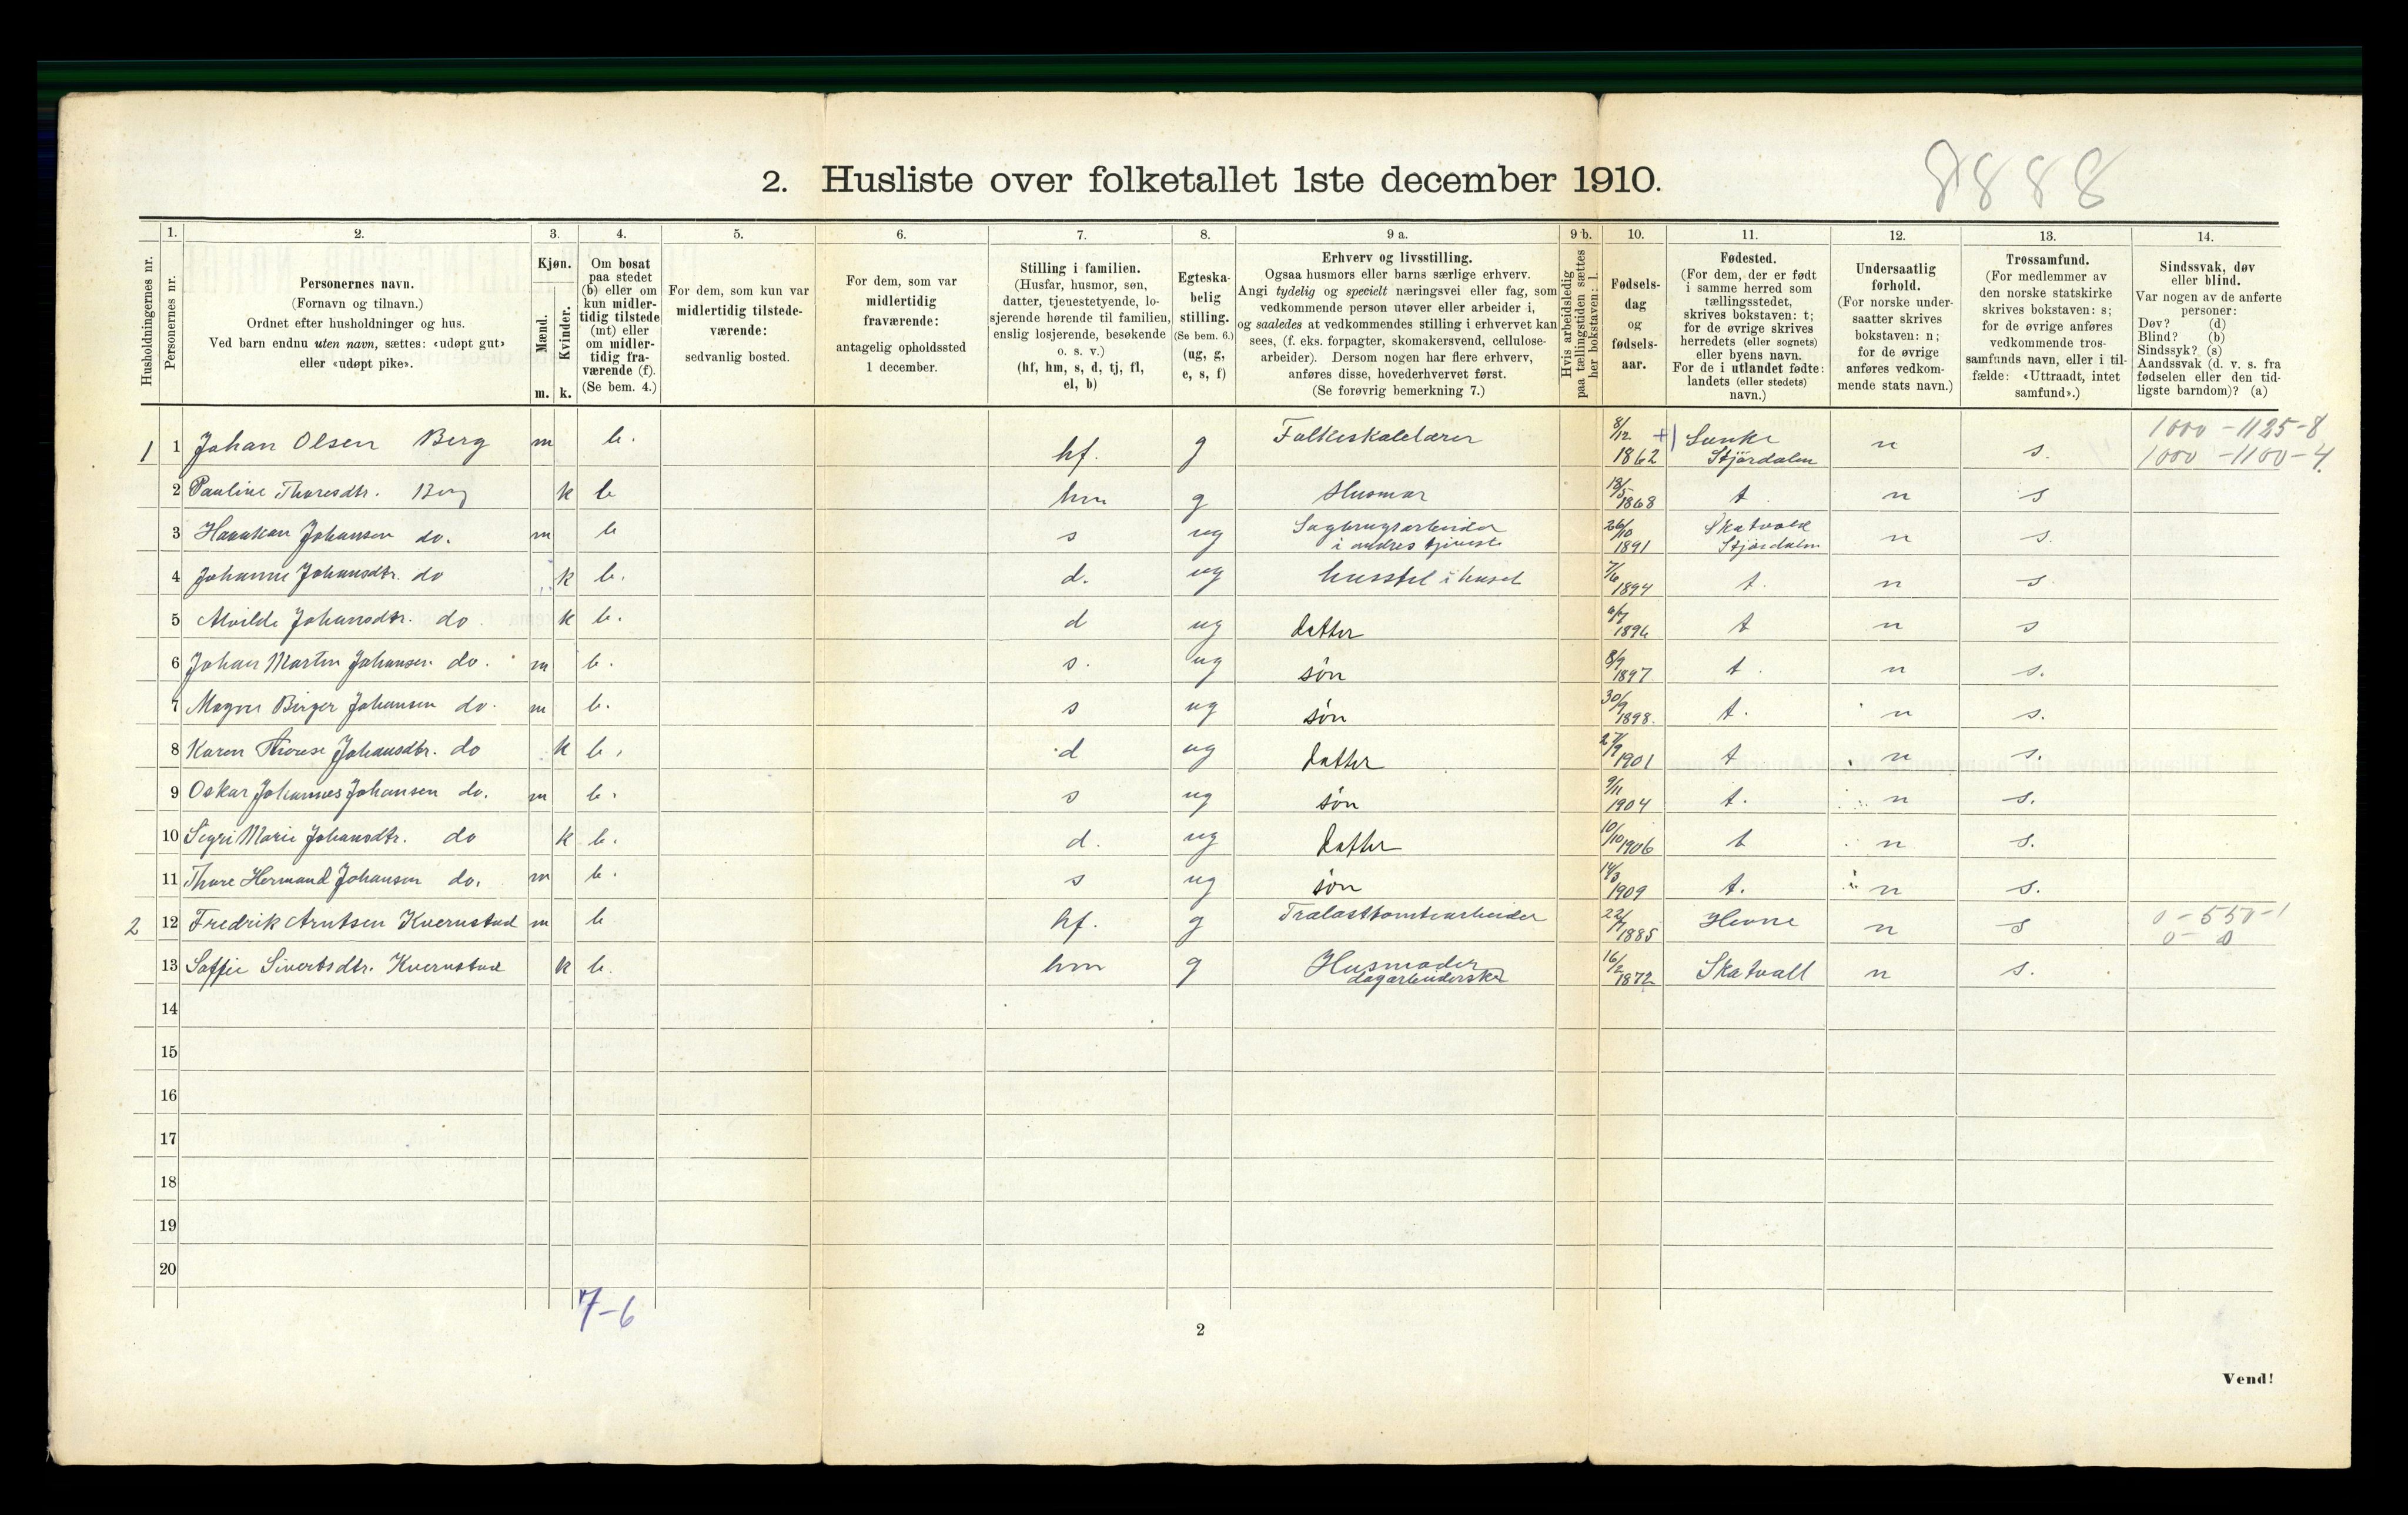 8888
2. Husliste over folketallet 1ste december 1910.
Husholdningernes nr.
1.
Personernes nr.
2.
Personernes navn.
(Fornavn og tilnavn.)
Ordnet efter husholdninger og hus.
Ved barn endnu uten navn, sættes: «udøpt gut»
eller «udøpt pike».
3.
Kjøn.
Mænd.
Kvinder.
m. k.
4.
Om bosat
paa stedet
(b) eller om
kun midler-
tidig tilstede
(mt) eller
om midler-
tidig fra-
værende (f).
(Se bem. 4.)
5.
For dem, som kun var
midlertidig tilstede-
værende:
sedvanlig bosted.
6.
For dem, som var
midlertidig
fraværende:
antagelig opholdssted
1 december.
7.
Stilling i familien.
(Husfar, husmor, søn,
datter, tjenestetyende, lo-
sjerende hørende til familien,
enslig losjerende, besøkende
o. s. v.)
(hf, hm, s, d, tj, fl,
el, b)
8.
Egteska-
belig
stilling.
(Se bem. 6.)
(ug, g,
e, s, f)
9 a.
Erhverv og livsstilling.
Ogsaa husmors eller barns særlige erhverv.
Angi tydelig og specielt næringsvei eller fag, som
vedkommende person utøver eller arbeider i,
og saaledes at vedkommendes stilling i erhvervet kan
sees, (f. eks. forpagter, skomakersvend, cellulose-
arbeider). Dersom nogen har flere erhverv,
anføres disse, hovederhvervet først.
(Se forøvrig bemerkning 7.)
9 b.
Hvis arbeidsledig
paa tællingstiden sættes
her bokstaven: l.
10.
Fødsels-
dag
og
fødsels-
aar.
11.
Fødested.
(For dem, der er født
i samme herred som
tællingsstedet,
skrives bokstaven: t;
for de øvrige skrives
herredets (eller sognets)
eller byens navn.
For de i utlandet fødte:
landets (eller stedets)
navn.)
12.
Undersaatlig
forhold.
(For norske under-
saatter skrives
bokstaven: n;
for de øvrige
anføres vedkom-
mende stats navn.)
13.
Trossamfund.
(For medlemmer av
den norske statskirke
skrives bokstaven: s;
for de øvrige anføres
vedkommende tros-
samfunds navn, eller i til-
fælde: «Uttraadt, intet
samfund».)
14.
Sindssvak, døv
eller blind.
Var nogen av de anførte
personer:
Døv? (d)
Blind? (b)
Sindssyk? (s)
Aandssvak (d. v. s. fra
fødselen eller den tid-
ligste barndom)? (a)
1 1 Johan Olsen Berg m b. hf. g Folkeskolelærer 8/12 1862 Stjørdalen n s. 1000 - 1125 - 8
1000 - 1100 - 4
2 Pauline Thoresdtr. Berg k b hm g Husmor 18/5 1868 t n s
3 Haakon Johansen do. m b s ug Sagbrugsarbeider
i andres tjeneste 26/10 1891 Skatvold
Stjørdalen n s.
4 Johanne Johansdtr. do k b. d. ug husstel i huset 7/6 1894 t. n s
5 Alvilde Johansdtr. do k b. d ug datter 1896 t n s
6 Johan Martin Johansen do. m b. s. ug søn 8/9 1897 t. n s.
7 Magne Birger Johansen do. m b. s ug søn 30/9 1898. t. n s.
8 Karen Therese Johansdtr. do k b. d ug datter 27/9 1901 t n s.
9 Oskar Johannes Johansen do. m b. s ug søn 9/11 1904 t. n s.
10 Sigri Marie Johansdtr. do k b. d. ug datter 10/10 1906 t n s.
11 Thore Hermand Johansen do. m b. s ug søn 14/3 1909 t. n s.
2 12 Fredrik Arntsen Kvernstad m b hf. g Trælasttomtearbeider 22/7 1885 Hevne n s 0 - 550 - 1
0 - 0
13 Soffie Sivertsdtr. Kvernstad k b. hm g Husmoder
dagarbeiderske 16/2 1872 Skatvall n s.
14
15
16
17
18
19
20
7-6
2
Vend!